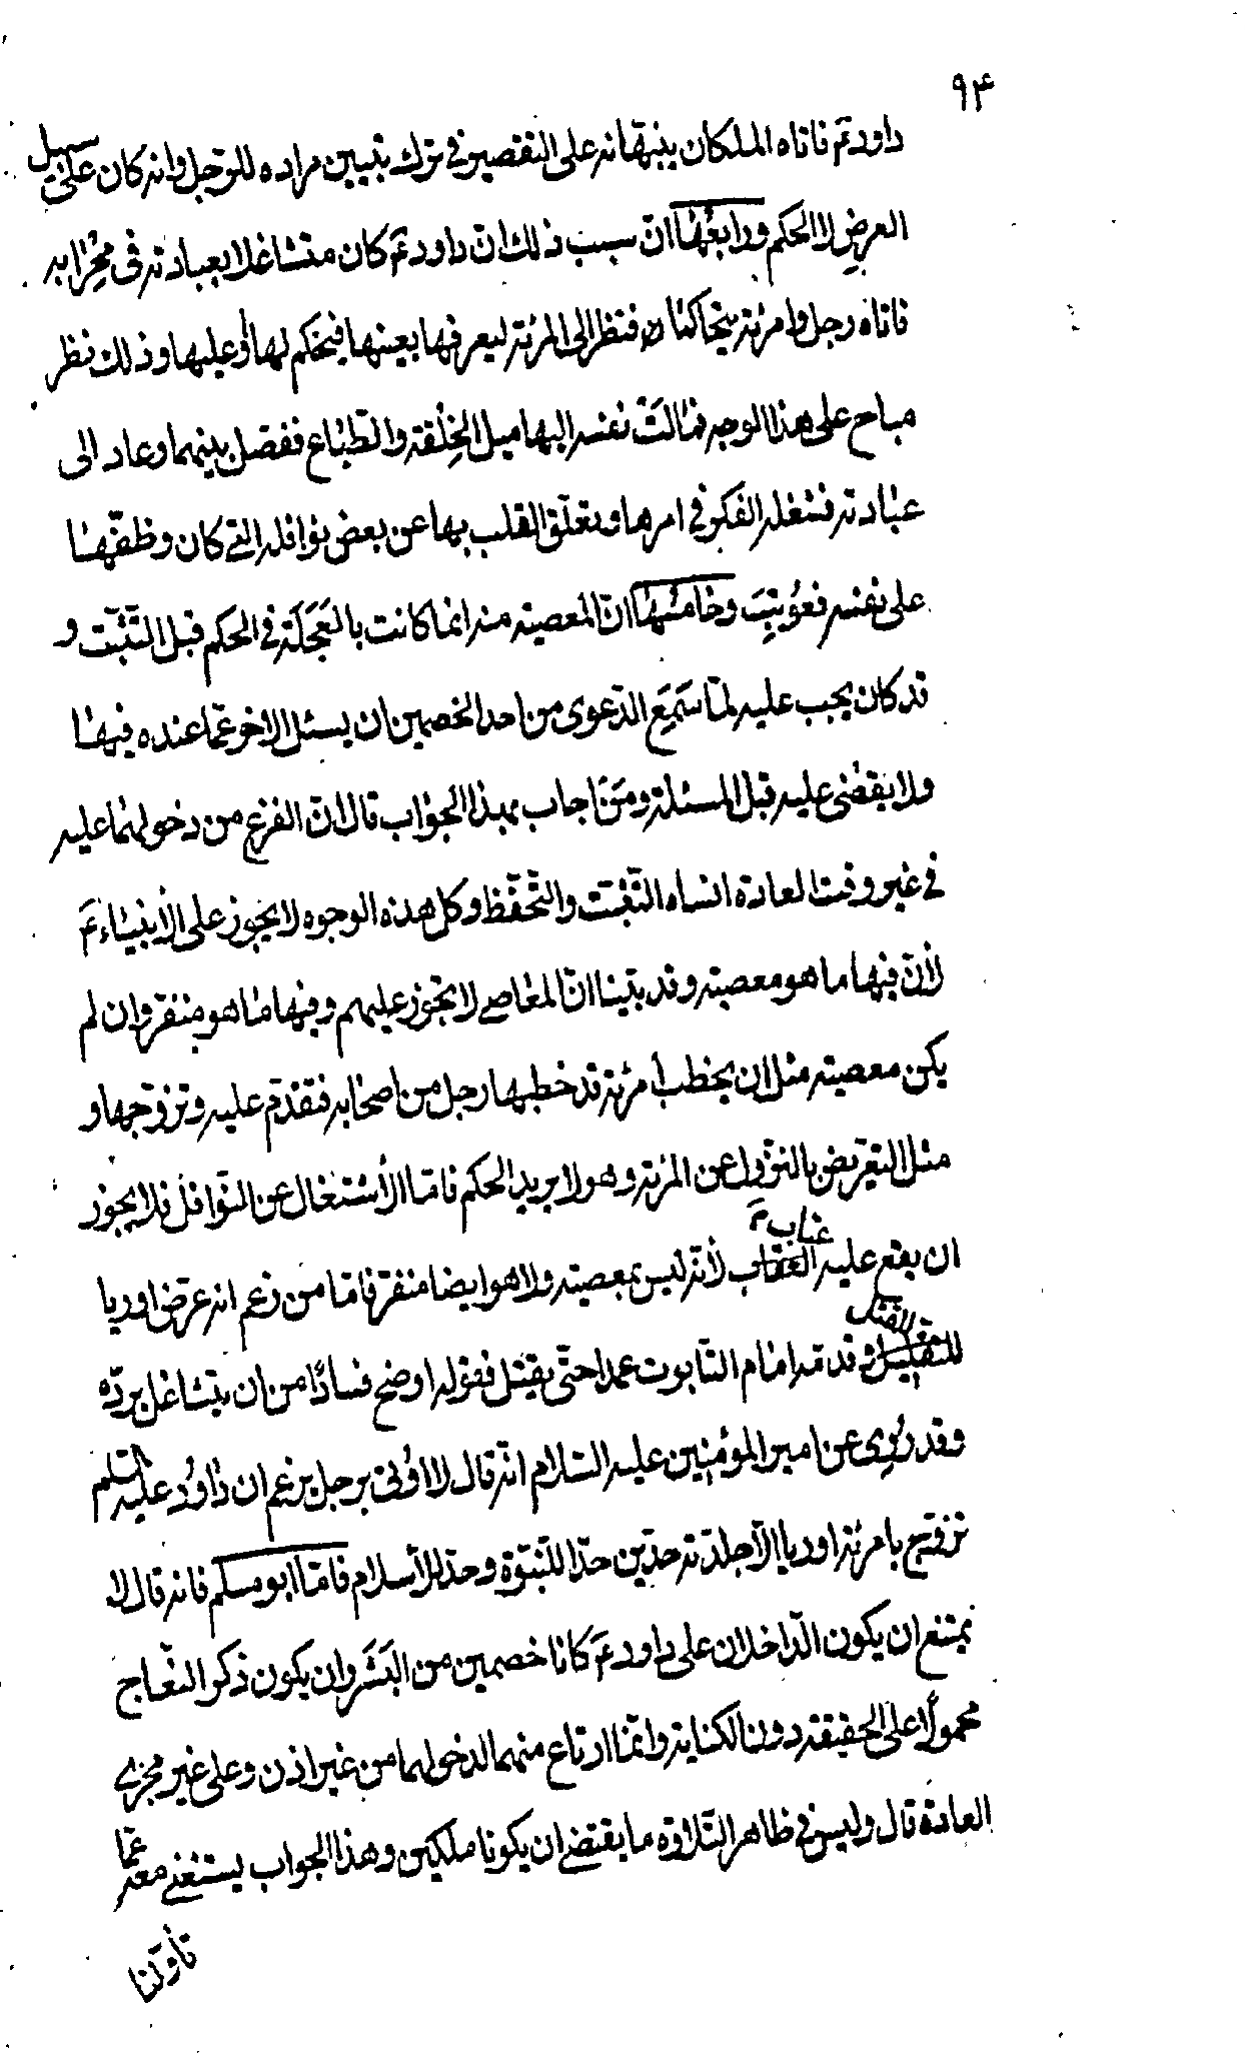 ۹۴
داود عَ فاتاه الملكان ينبّهانه على التقصير فى ترك تبيين مراده للرّجل وانه كان على سبيل
العرض لا الحكم ورابعها انّ سبب ذلك انّ داود عَ كان متشاغلا بعبادته فى محرابه
فاتاه رجل وامرئة يتحاكمان فنظر الى المرئة ليعرفها بعينها فيحكم لها أو عليها وذلك نظر
مباح على هذا الوجه فمالَت نفسه اليها ميل الخِلقة والطّباع ففصل بينهما وعاد الى
عبادته فشغله الفكر فى امرها وتعلّق القلب بها عن بعض نوافله التى كان وظفّها
على نفسه فعُوتِبَ وخامسُها انّ المعصية منه انما كانت بالعَجَلَة فى الحكم قبل التّثبّت و
قد كان يجب عليه لمّا سَمِعَ الدّعوى من احد الخصمين ان يسئل الاخر عمّا عنده فيها
ولا يقضى عليه قبل المسئلة ومَن اجاب بهذا الجواب قال انّ الفزع من دخولهما عليه
فى غير وقت العادة انساه التّثبّت والتّحفّظ وكل هذه الوجوه لا يجوز على الأنبياء عَ
لأنّ فيها ما هو معصية وقد بيّنا انّ المعاصى لا تجوز عليهم وفيها ما هو منفر وان لم
يكن معصية مثل ان يخطب أمرئة قد خطبها رجل من اصحابه فتقدّم عليه وتزوّجها و
مثل التعريض بالنزول عن المرئة وهو لا يريد الحكم فامّا الأشتغال عن النّوافل فلا يجوز
ان يقع عليه العقاب عتاب مَ لأنّه ليس بمعصية ولا هو ايضا منفّر فامّا من زعم انه عرّض اوريا
للقتل وقدّمه امام التّابوت عمدا حتّى يقتل فقوله اوضح فسادًا من ان يتشاغل بردّه
وقد رُوِى عن امير المؤمنِين عليه السّلام انّه قال لا اوُتى برجل يزعم ان داوُد عليه السّلم
تزوّج بامرئة اوريا الّا جلدّته حدّين حدّا للنّبّوة وحدّا للأسلام فامّا ابو مسلم فانه قال لا
يمتنع ان يكون الدّاخلان على داود عَ كانا خصمين من البَشَر وان يكون ذكر النّعاج
محمولًا على الحقيقة دون الكناية وانّما ارتاع منهما لدخولهما من غير اذن وعلى غير مجرى
العادة قال وليس فى ظاهر التّلاوة ما يقتضى ان يكونا ملكين وهذا الجواب يستغنى معه عمّا
تأوّلنا